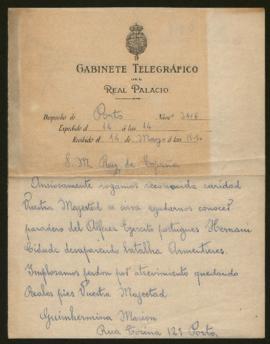 GABINETE TELEGRÁFICO
DEL
REAL PALACIO
Despacho de Porto Núm.
Expedido el 14 á las 14
Recibido el 14 de Marzo á las
S. M. Rey de España
Ansiosamente rogamos reconocida caridad
Vuestra Majestad se sirva ayudarnos conocer
paradero del Alferez Ejercito portugues Hernani
Cidade desaparecido batalha Armentieres.
Imploramos perdon por atrevimiento quedando
Reales pies Vuestra Majestad
Guinhermina Marion
Rua 121 Porto.